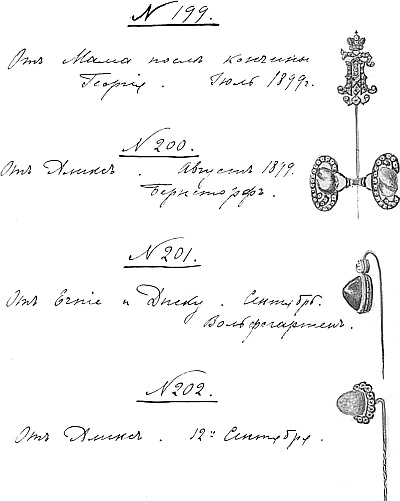 N 199.
Отъ Мама послѣ кончины
Георгія. Іюль 1899г.
N 200.
Отъ Аликсъ. Августъ 1899.
Бернсторфъ.
N 201.
Отъ Ernie и Ducky. Сентябрь.
Вольфсгартенъ.
N 202.
Отъ Аликсъ. 12го Сентября.